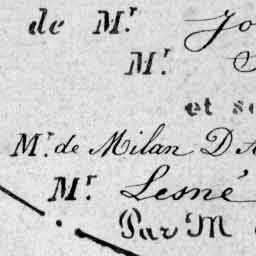 de M.r Jo
M.r
et se
M.r de Milan D'A
M.r Lesné
Par M